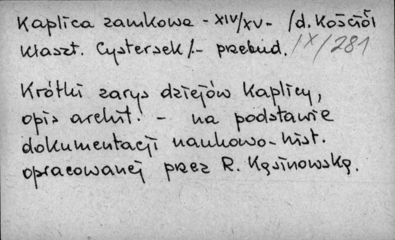 Kaplica zamkowa - XIV/XV - /d. Kościół
Klaszt. Cystersek/- przebud. IX/281
Krótki zarys dziejów Kaplicy,
opis archit. - na podstawie
dokumentacji naukowo-hist.
opracowanej przez R. Kąsinowską.